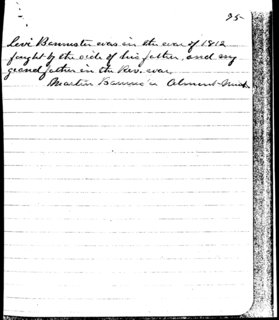 25-
Levi Bannister was in the war of 1812
fought by the side of his father, and my
grand father in the Rev. war
Martin Almont